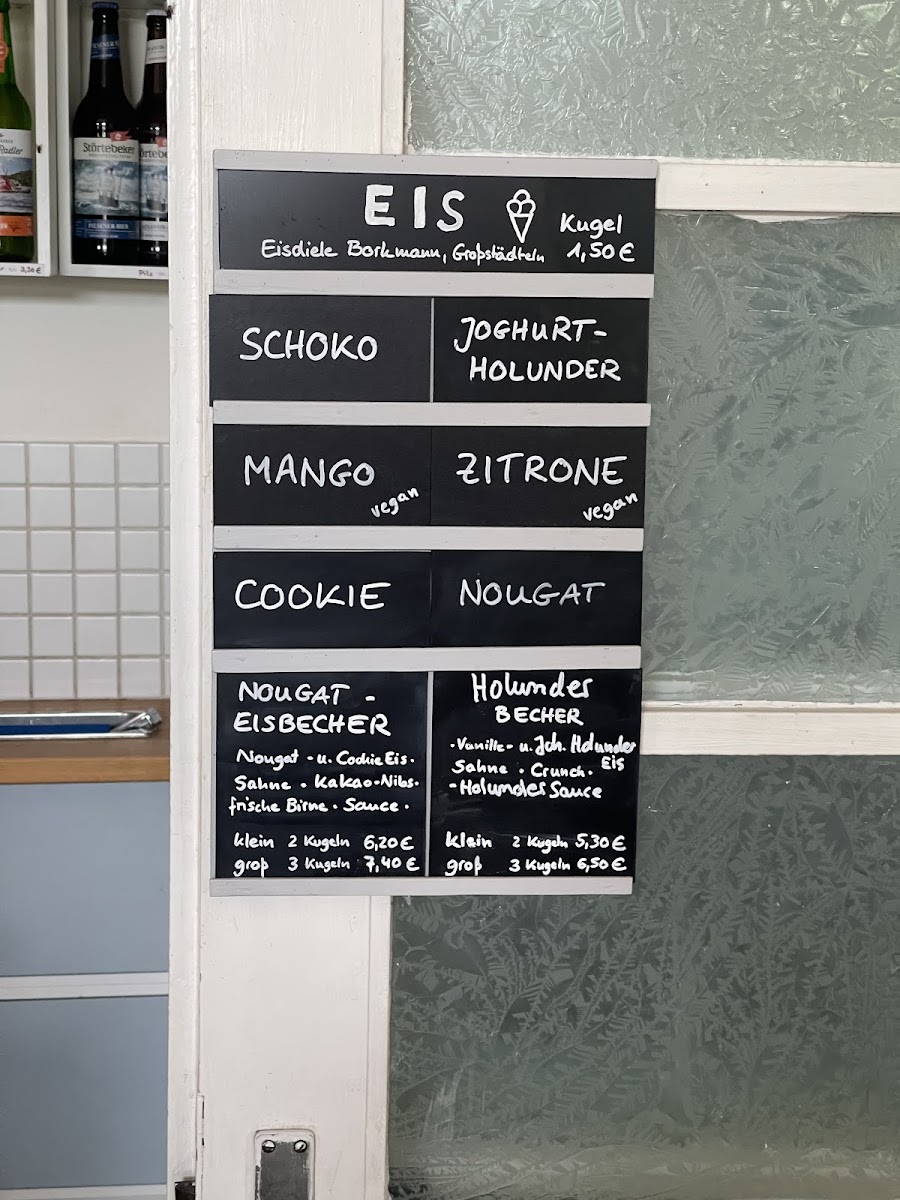 Radler
Störtebeker
PILSENER-BIER
3,36 €
Pils
EIS
Kugel
Eisdiele Borkmann, Großstädteln 1,50 €
SCHOKO
JOGHURT-
HOLUNDER
MANGO
vegan
ZITRONE
vegan
COOKIE
NOUGAT
NOUGAT -
EISBECHER
Nougat - u. Cookie Eis .
Sahne . Kakao-Nibs .
frische Birne . Sauce .
klein 2 Kugeln 6,20 €
groß 3 Kugeln 7,40 €
Holunder
BECHER
-Vanille- u. Joh. Holunder
EIS
Sahne . Crunch .
-Holunder Sauce
klein 2 Kugeln 5,30 €
groß 3 Kugeln 6,50 €